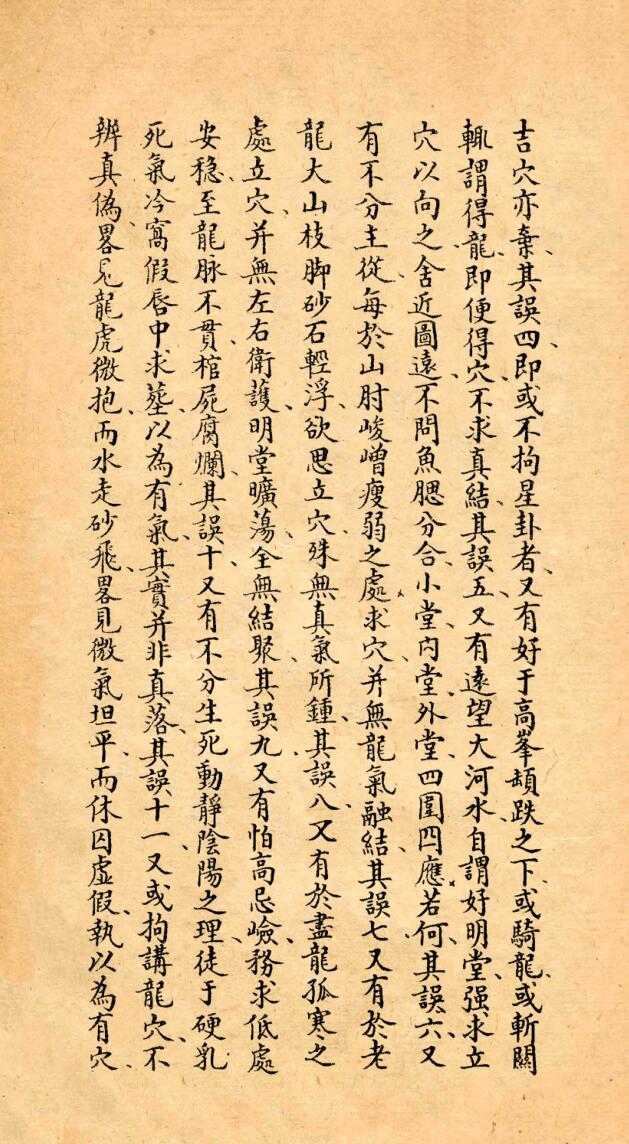 吉穴亦棄、其誤四、即或不拘星卦者、又有好于高峯頓跌之下、或騎龍、或斬關
輒謂得龍、即便得穴、不求真結、其誤五、又有遠望大河水、自謂好明堂、强求立
穴以向之、舍近圖遠、不問魚腮分合、小堂內堂、外堂四圍四應若何、其誤六、又
有不分主從、每於山肘峻嶒瘦弱之處、求穴、并無龍氣融結、其誤七、又有於老
龍大山枝脚砂石輕浮、欲思立穴、殊無真氣所鍾、其誤八、又有於盡龍孤寒之
處立穴、并無左右衛護、明堂曠蕩、全無結聚、其誤九、又有怕高忌嶮、務求低處
安穩、至龍脉不貫、棺屍腐爛、其誤十、又有不分生死動靜陰陽之理、徒于硬乳
死氣冷窩假唇中求塟、以為有氣、其實并非真落、其誤十一、又或拘講龍穴、不
辨真偽、畧見龍虎微抱、而水走砂飛、畧見微氣坦平、而休囚虛假、執以為有穴、